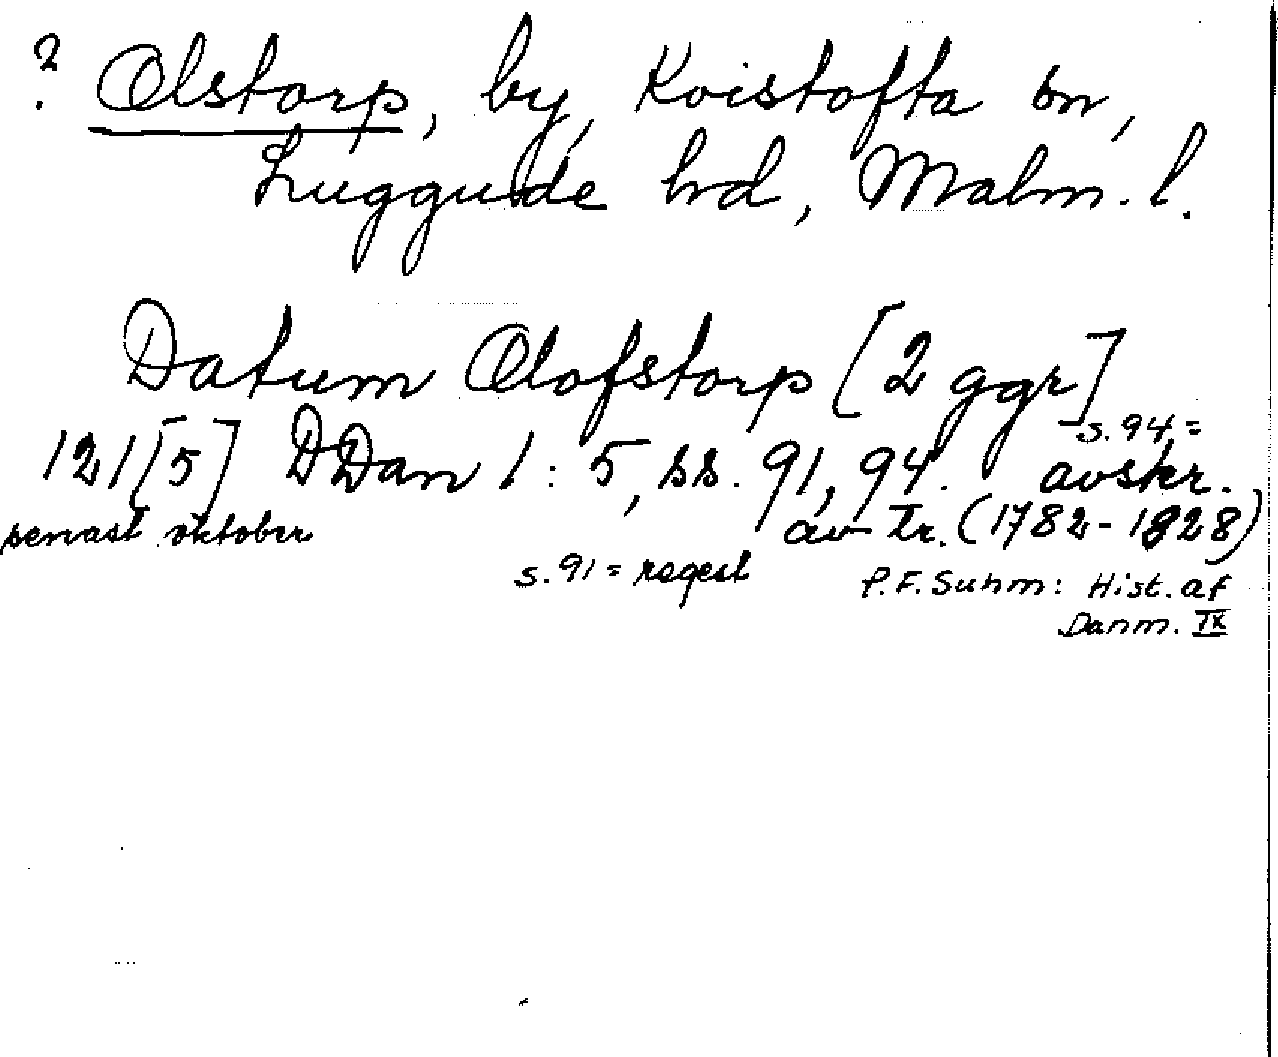 ? Olstorp, by, Kvistofta sn,
Luggude hd, Malm. l.
Datum Olofstorp [2 ggr]
121[5] DDan 1:5, ss. 91, 94. s. 94 =
avskr.
senast oktober
av tr. (1782-1828)
s. 91 = regest
P.F. Suhm: Hist. af
Danm. IX